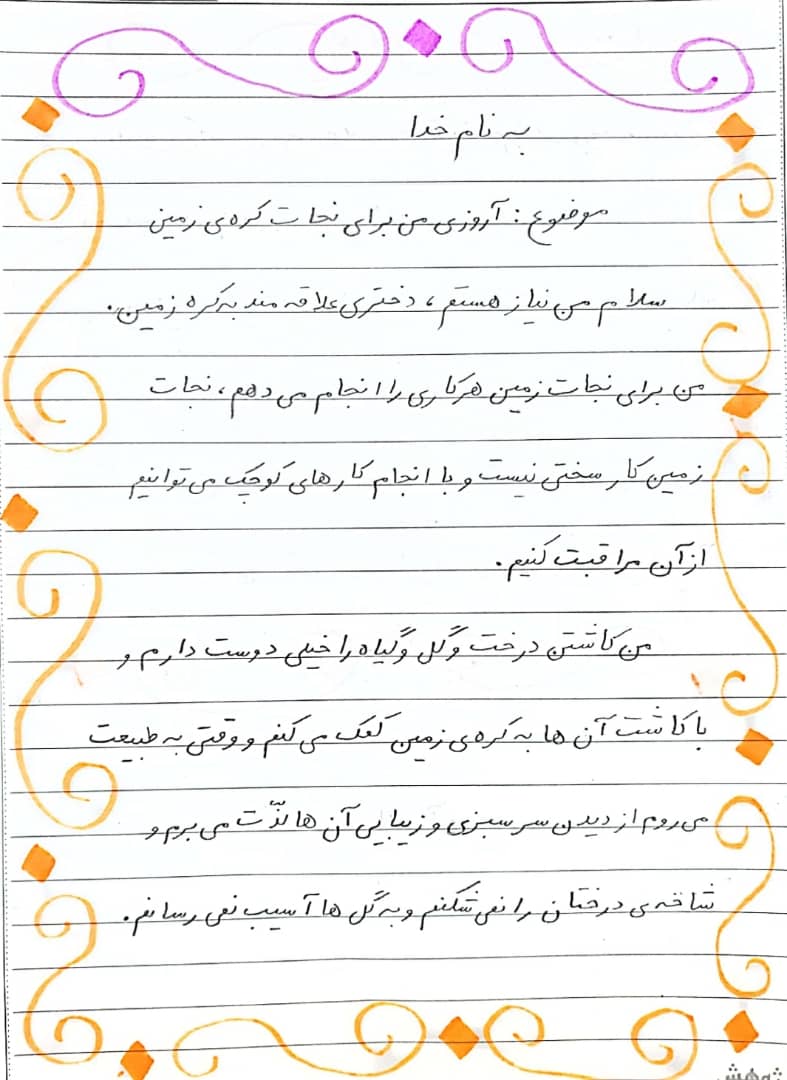 به نام خدا
موضوع: آروزی من برای نجات کره‌ی زمین
سلام من نیاز هستم، دختری علاقه مند به کره زمین.
من برای نجات زمین هرکاری را انجام می دهم، نجات
زمین کار سختی نیست و با انجام کارهای کوچک می توانیم
از آن مراقبت کنیم.
من کاشتن درخت و گل و گیاه را خیلی دوست دارم و
با کاشت آن ها به کره‌ی زمین کمک می کنم و وقتی به طبیعت
می روم از دیدن سرسبزی و زیبایی آن ها لذّت می برم و
شاخه‌ی درختان را نمی شکنم و به گل ها آسیب نمی رسانم.